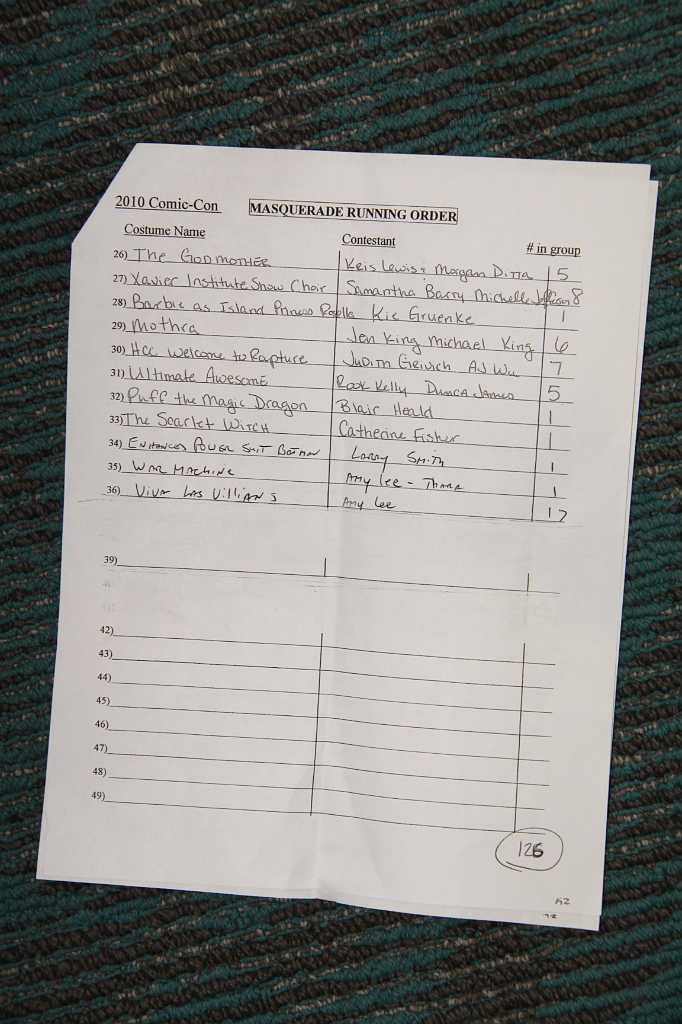 2010 Comic-Con MASQUERADE RUNNING ORDER
Costume Name Contestant # in group
26) The GODMOTHER Keis Lewis + Morgan Ditta 5
27) Xavier Institute Show Choir Samantha Barry Michelle 8
28) Barbie as Island Princess Kie Gruenke 1
29) Mothra Jen King Michael King 6
30) Hcc Welcome to Rapture Judith AJ Wu 7
31) Ultimate Awesome Kelly James 5
32) Puff the Magic Dragon Blair Heald 1
33) The Scarlet Witch Catherine Fisher 1
34) Power Suit Batman Larry Smith 1
35) WAR MACHINE Amy Lee - 1
36) Viva Las Villians Amy Lee 17
39)
42)
43)
44)
45)
46)
47)
48)
49)
126